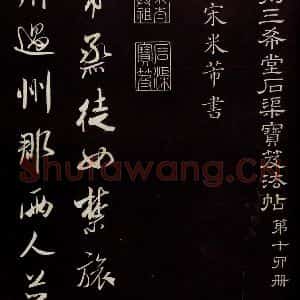 三希堂石渠寶笈法帖 第十四册
宋米芾書
石渠寶笈
芾烝徒如禁旅
過州郡兩人並
Shufawang.cn